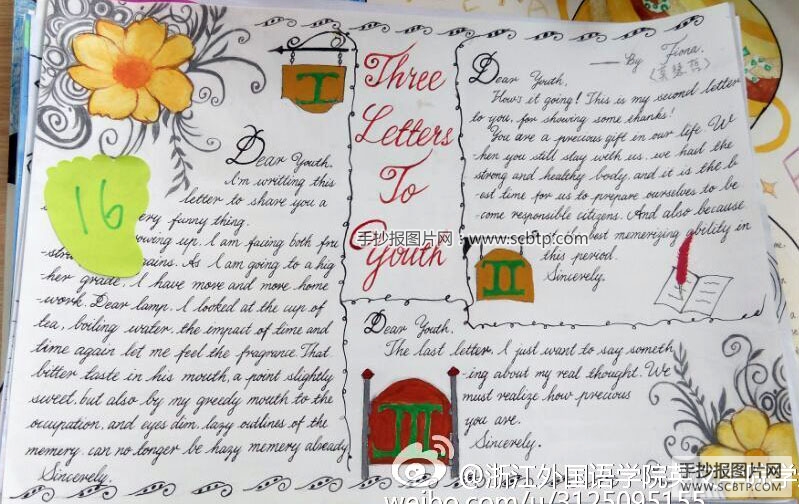 Three
Letters
To
Youth
— By Fiona.
I
Dear Youth.
I'm writting this
letter to share you a
ery funny thing.
owing up, I am facing both fru
ains. As I am going to a hig
-her grade, I have more and more home
-work. Dear lamp, I looked at the cup of
tea, boiling water, the impact of time and
time again let me feel the fragrance. That
bitter taste in his mouth, a point slightly
sweet, but also by my greedy mouth to the
occupation, and eyes dim, lazy outlines of the
memery, can no longer be hazy memery already
Sincerely.
16
Dear Youth.
How's it going! This is my second letter
to you, for showing some thanks!
You are a precious gift in our life. W
-hen you still stay with us, we had the
strong and healthy body, and it is the b
-est time for us to prepare ourselves to be
-come responsible citizens. And also because
best memerizing ability in
this period.
Sincerely.
II
Dear Youth.
The last letter, I just want to say someth
-ing about my real thought. We
must realize how precious
you are.
Sincerely.
III
手抄报图片网：www.scbtp.com
@浙江外国语学院
weibo.com/u/3125095155
手抄报图片网
WWW.SCBTP.COM